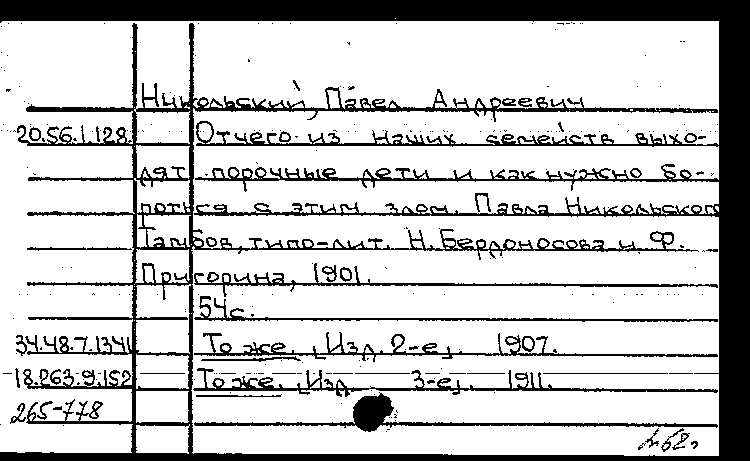 Никольский, Павел Андреевич
20.56.1.128. Отчего из наших семейств выхо-
дят порочные дети и как нужно бо-
роться с этим злом. Павла Никольского
Тамбов, типо-лит. Н. Бердоносова и Ф.
Пригорина, 1901.
54с.
34.48.7.1341 То же. [Изд. 2-е]. 1907.
18.263.9.152 То же. [Изд. 3-е]. 1911.
265-778